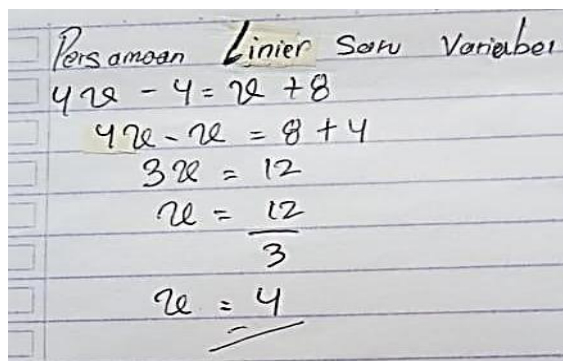 Persamaan Linier Satu Variabel
4x - 4 = x + 8
4x - x = 8 + 4
3x = 12
x = 12
3
x = 4